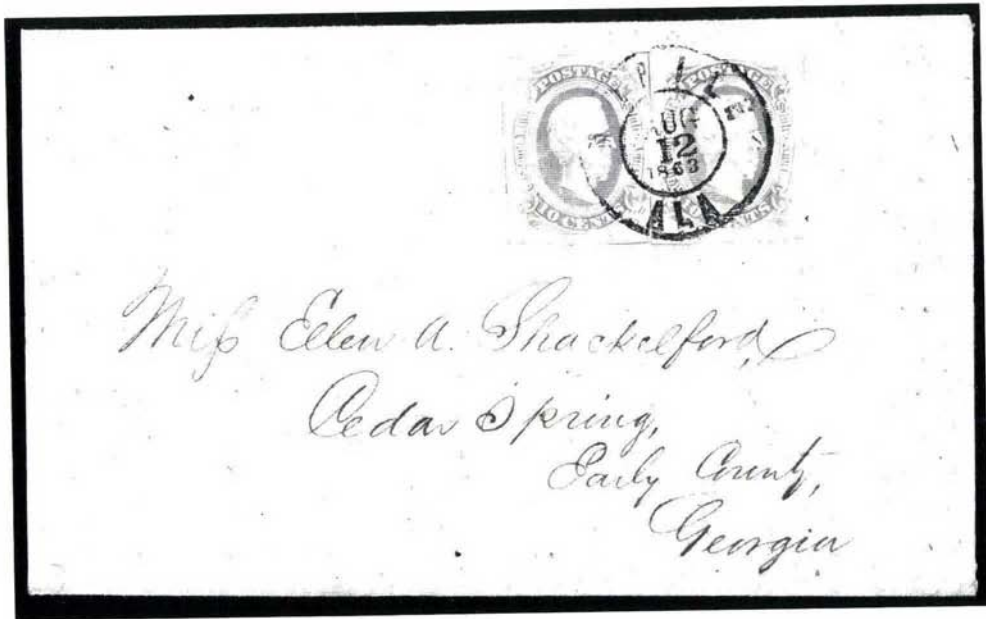 POSTAGE POSTAGE
AUG
12
1863
ALA
Miss Ellen A. Shackelford,
Cedar Spring,
Early County,
Georgia